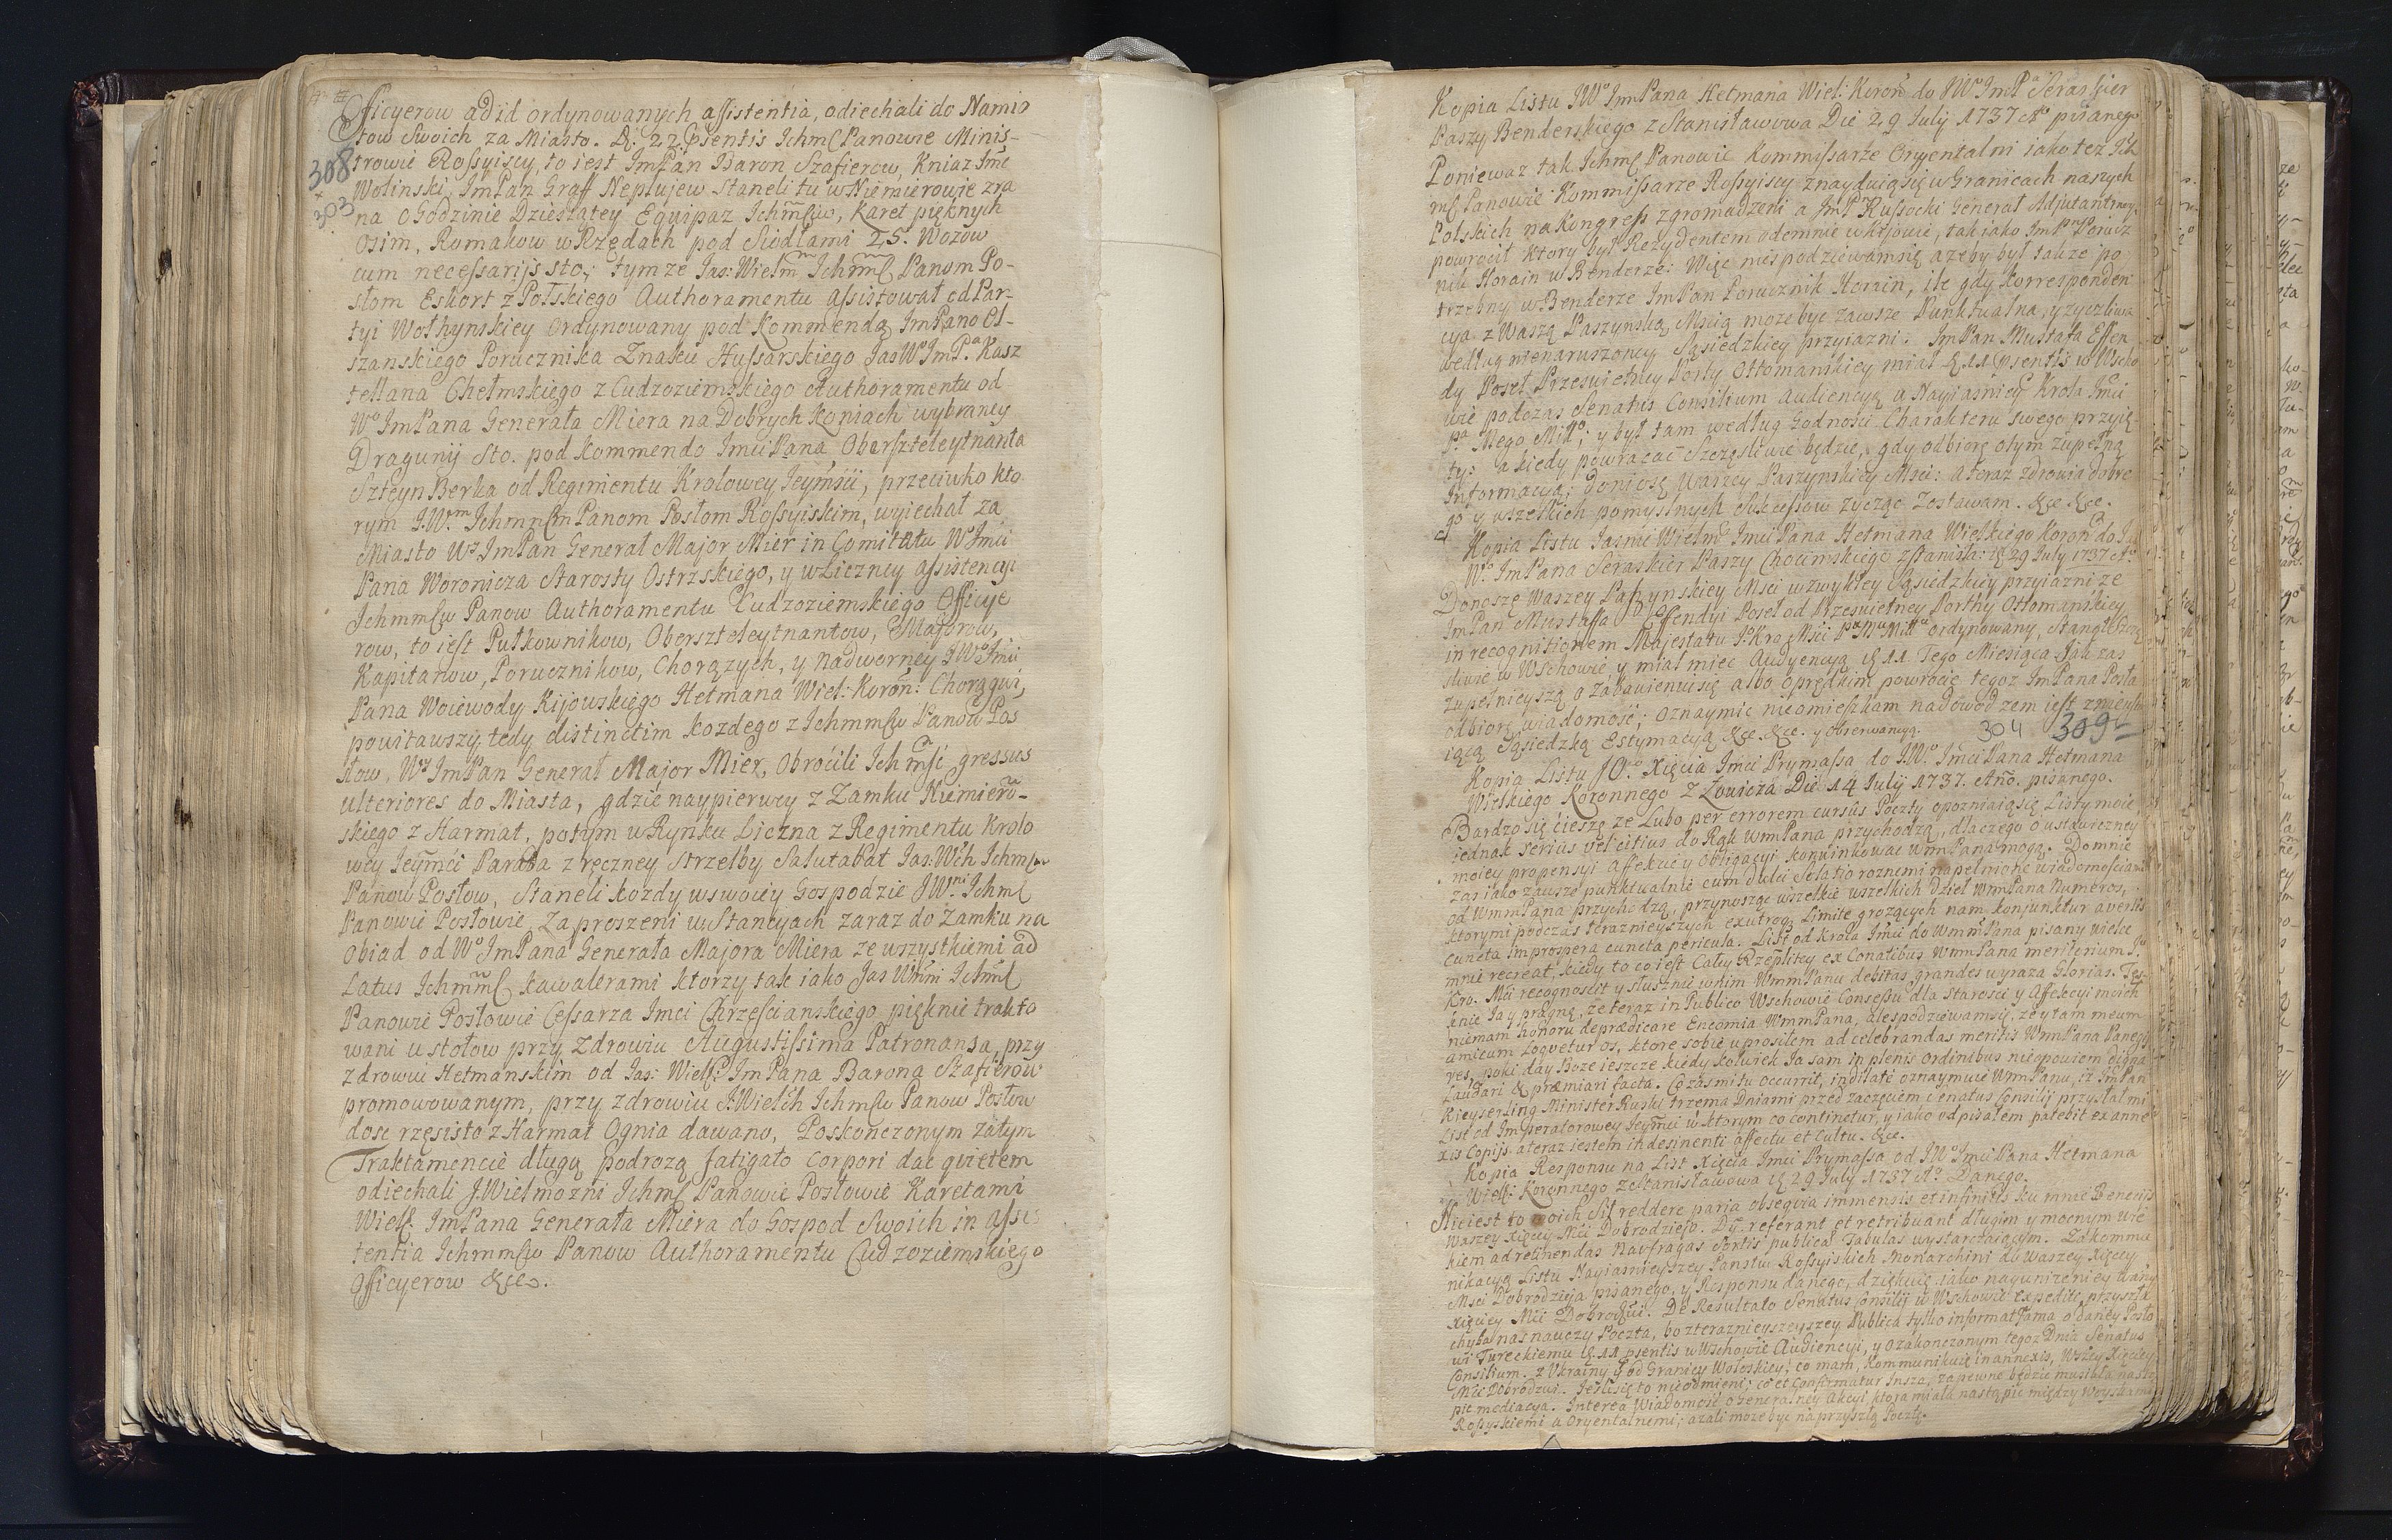 Officyerow ad id ordynowanych assistentia, odiechali do Namio
tow Swoich za Miasto. D. 22 psentis Ichmſ Panowie Minis-
308 trowie Rossyiscy, to iest ImPan Baron Szafierow, Kniaz Ime
Wolinski, ImPan Graff Neplujew Staneli tu w Niemierowie zra
303 na o Godzinie Dziesiątey Equipaz Ichmſciow, Karet pięknych
Osim, Rumakow w Rzędach pod Siodłami 25. Wozow
cum necessarijs sto, tymze Jas: Wielm Ichmſ Panom Po-
słom Eskort z Polskiego Authoramentu assistował od Par-
tyi Wołhynskiey Ordynowany pod Kommendą ImPana Ol-
szanskiego Porucznika Znaku Hussarskiego Jas Wo ImPa Kasz
tellana Chełmskiego z Cudzoziemskiego Authoramentu od
Wo ImPana Generała Miera na Dobrych Koniach wybraney
Dragunij Sto. pod Kommendo Imci Pana Oberszteleytnanta
Szteyn Berka od Regimentu Krolowey Ieymści, przeciwko kto
rym J.W.m Ichmmſm Panom Posłom Rossyiskim, wyiechał za
Miasto Wo ImPan Generał Major Mier in Comitatu Wo Imci
Pana Woronicza Starosty Ostrzskiego, y w Liczney assistencyi
Ichmmſw Panow Authoramentu Cudzoziemskiego Officye
row, to iest Pułkownikow, Oberszteleytnantow, Majorow,
Kapitanow, Porucznikow, Chorązych, y nadworney JWo Imci
Pana Woiewody Kijowskiego Hetmana Wiel: Koron: Chorągwi,
powitawszy tedy distinctim kozdego z Ichmmſw Panow Pos
łow, Wy ImPan Generał Major Mier, Obrócili Ichmśc gressus
ulteriores do Miasta, gdzie naypierwey z Zamku Niemiero-
skiego z Harmat, potym w Rynku Liczna z Regimentu Krolo
wey Ieymci Parada z ręczney strzelby Salutabat Jas: Wch Ichmſw
Panow Posłow, Staneli kozdy w swoiey Gospodzie JWni Ichmſ
Panowie Posłowie, Zaproszeni w Stancyach zaraz do Zamku na
Obiad od Wo ImPana Generała Majora Miera ze wszystkiemi ad
Latus Ichmmſ kawalerami ktorzy tak iako Jas Wmni Ichmſ
Panowie Posłowie Cessarza Imci Chrzescianskiego pięknie trakto
wani u stołow przy Zdrowiu Augustissima Patronansa, przy
zdrowiu Hetmanskim od Jas: Wielſ: ImPana Barona Szafierow
promowowanym, przy zdrowiu J.Wielch Ichmſw Panow Posłow
dosc rzęsisto z Harmat Ognia dawano, Poskonczonym zatym
Traktamencie długą podrozą fatigato corpori dac quietem
odiechali J.Wielmozni Ichmſ Panowie Posłowie Karetami
Wielſ. ImPana Generała Miera do Gospod Swoich in assis
tentia Ichmmſw Panow Authoramentu Cudzoziemskiego
Officyerow &c.
Kopia Listu JWo ImPana Hetmana Wiel: Koron do JWo ImPa Seraskier
Paszy Benderskiego z Stanisławowa Die 29 July 1737 Ao pisanego
Poniewaz tak Ichmſ Panowie Kommissarze Oryentalni iako tez Ich
mſ Panowie Kommissarze Rossyiscy znayduią się w Granicach naszych
Polskich na Kongress zgromadzeni a ImPn Russocki Generał Adjutant moy
powrocił ktory był Rezydentem odemnie w Kijowie, tak iako ImP Porucz
nik Horain w Benderze: Więc niespodziewam się azeby był takze po
trzebny w Benderze ImPan Porucznik Horain, ile gdy Korresponden
cya z Waszą Paszynską Mścią moze byc zawsze Punktualna, y zyczliwa
według nienaruszoney Sąsiedzkiey przyiazni. ImPan Mustafa Effen
dy Poseł Przeswietney Porty Ottomanskiey miał d. 11 psentis w Wscho
wie podczas Senatus Consilium audiencyą a Nayiasnieysz Krola Imci
Pa Mego Mitto; y był tam według Godności Charakteru swego przyię
ty: a kiedy powracac Szczęśliwie będzie, gdy odbiorę o tym zupełną
Informacyą; doniosę Waszey Paszynskiey Mści: a teraz zdrowia dobre
go y wszelkich pomyslnych Sukcessow zycząc Zostawam. &c &c.
Kopia Listu Jasnie Wielmo Imci Pana Hetmana Wielkiego Koron do J
Wo ImPana Seraskier Paszy Chocimskiego zStanisła: d 29 July 1737 Ao
Donoszę Waszey Paszynskiey Mści wzwykłey Sąsiedzkiey przyiazni ze
ImPan Mustaffa Effendyi Poseł od Przeswietney Porthy Ottomanskiey
in recognitionem Majestatu J. Kro Mści Pa Mo Mitto ordynowany, Stanął Szczę
sliwie w Wschowie y miał miec Audyencyą d 11 Tego Miesiąca Jak zas
zupełnieyszą o zabawieniu się albo o prędkim powrocie tegoz ImPana Posła
odbiorę wiadomość; oznaymic nieomieszkam na dowod zem iest zmienia
iącą Sąsiedzką Estymacyą &c. &c. y obserwancyą. 304 309
Kopia Listu JO.o Xięcia Imci Prymassa do J.W.o Imci Pana Hetmana
Wielkiego Koronnego z Łowicza Die 14 July 1737. Ano. pisanego.
Bardzo się cieszę ze Lubo per errorem cursûs Poczty opozniaią się Listy moie
iednak serius vel citius do Rąk WmPana przychodzą, dlaczego o ustawiczney
moiey propensyi affekcie y obligacyi konwinkowac WmPana mogą. Do mnie
zas iako zawsze punktualnie cum dulci Solatio roznemi napełnione wiadomościami
od WmmPana przychodzą, przynosząc wszelkie wszelkich dzieł WmPana Numeros,
ktorymi podczas teraznieyszych exutroq Limite grozących nam konjunktur avertis
cuncta improspera cuncta pericula. List od Krola Imci do WmmPana pisany wielce
mnie recreat, kiedy to co iest Całey Rzeplitey ex Conatibus WmmPana meritorium J.
Kro. Mci recognoscit y słusznie w nim WmmPanu debitas grandes wyraza Glorias. Tęs
knie Ja y pragnę, ze teraz in Publico Wschowie Consessu dla Starosci y Affekcyi moich
niemam honoru deprædicare Encomia WmmPana, ale spodziewam się, ze y tam meum
amicum Loqvetur os, ktore sobie uprosiłem ad celebrandas meritis WmPana Panegy
res, poki day Boze ieszcze kiedy kolwiek Ja sam in plenis ordinibus nieopowiem digna
Laudari & præmiari facta. Co zas mi tu occurrit, indilatè oznaymuie WmPanu, iz ImPan
Kieyserling Minister Ruski trzema Dniami przed zaczęciem Senatus Consilij przysłał mi
List od Imperatorowey Ieymci w ktorym co continetur, y iako odpisałem patebit ex anne
xis Copijs. a teraz iestem indesinenti affectu et Cultu. &c.
Kopia Responsu na List Xięcia Imci Prymassa od JWo Imci Pana Hetmana
Wielſ: Koronnego ze Stanisławowa d 29 July 1737 Ao Danego.
Niciest to moich Sił reddere paria obseqvia immensis et infinitis ku mnie Beneficijs
Waszey Xięcey Mści Dobrodzieio. Dij referant et retribuant długim y mocnym wie
kiem ad retinendas navfragas sortis publicæ Tabulas wystarczaiącym. Za kommu
nikacyą Listu Nayiasnieyszey Panstw Rossyiskich Monarchini do Waszey Xięcey
Mści Dobrodzieja pisanego, y Responsu danego, dziękuię iako nayunizeniey Waszey
Xięcey Mści Dobrodzie. De Resultato Senatus Consilij w Wschowie expedite, przyszła
chyba nas nauczy Poczta, bo z teraznieyszey Publica tylko informat fama o daney Posło
wi Tureckiemu d 11 psentis w Wschowie Audiencyi, y o zakonczonym tegoz Dnia Senatus
Consilium. z Ukrainy y od Granicy Wołoskiey co mam, Kommunikuię in annexis, Wszey Xięcey
Mści Dobrodziei. Iesli się to nieodmieni; co et confirmatur Insza, zapewne będzie musiała nastą
pic mediacya. Interea Wiadomosc o generalney akcyi ktora miała nastąpic między Woyskami
Rossyskiemi a Oryentalnemi; azali moze byc na przyszłą Pocztę.